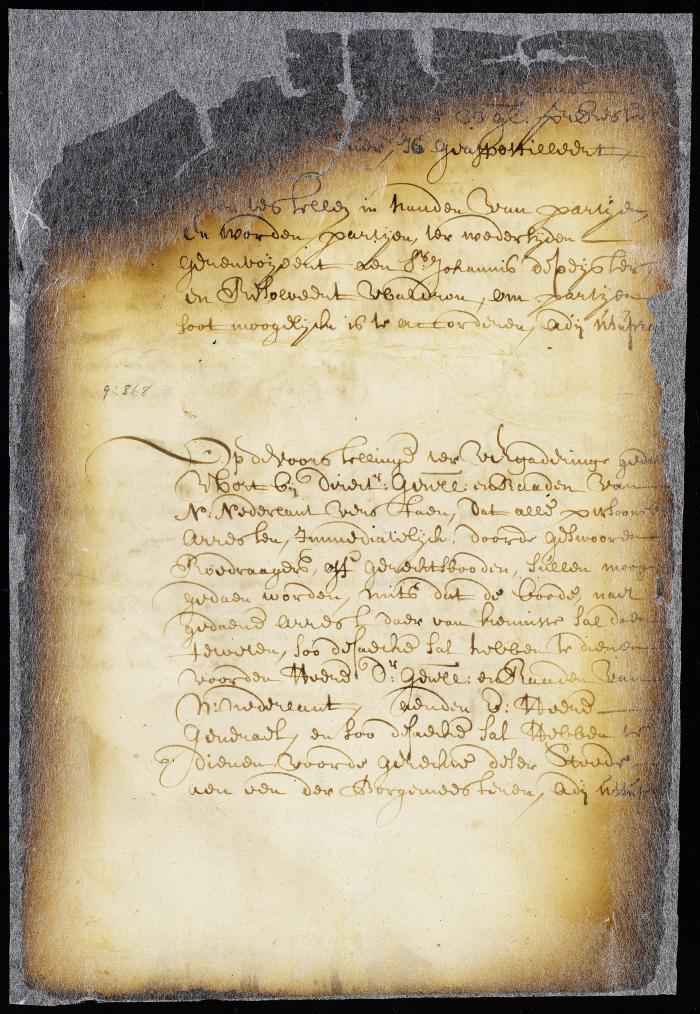 33 gl:
16 geapostilleert
stellen in handen van partijen
En worden, partijen, ter wederzijden
gerenvoijeert aen Sr. Johannis depeijster
en Resolveert Waldron, om partijen
soot moogelijck is te accorderen, Adij
9:868
Op de voorstellinge ter vergaderinge
wort bij Direct. Genll: en Raaden van
N: Nederlant verstaen, Dat alle persoon
Arresten, Immediatelijck, doorde geswooren
Roedraagers, off gerechtsbooden, sullen moog
gedaen worden, mits dat de boode, naer
gedaene arrest daer van kennisse sal doen
, soo desaecke sal hebben te dienen
voorden Heere Dr. Genll: en Raaden van
N: nederlant, aenden Hr: Heere
Generael, en soo desaecke sal Hebben te
dienen voorde gerechte deser Steede
aen een der Borgemeesteren, Adij